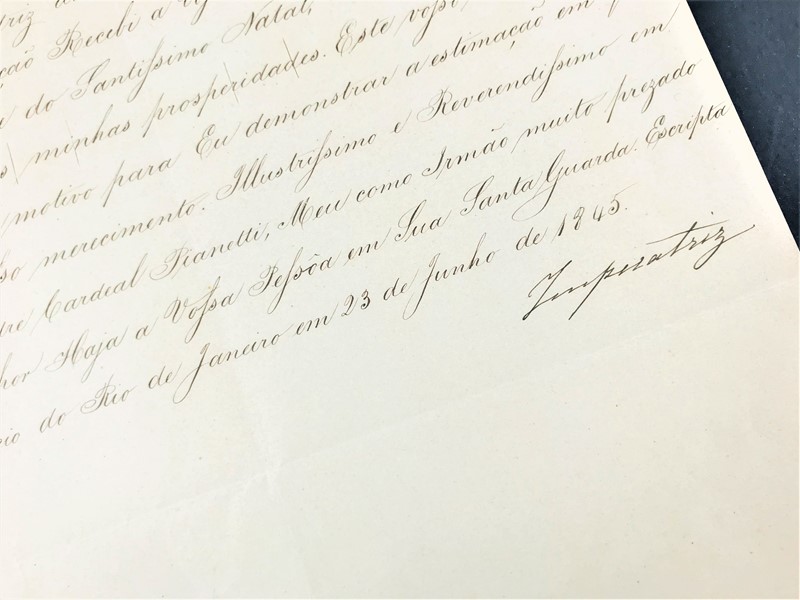 ção Recebi a
do Santissimo Natal,
minhas prosperidades. Este vosso
motivo para Eu demonstrar a estimação em
merecimento. Illustrissimo e Reverendissimo em
Cardeal Pianetti, Meu como Irmão muito prezado
Haja a Vossa Pessôa em Sua Santa Guarda. Escripta
do Rio de Janeiro em 23 de Junho de 1845.
Imperatriz